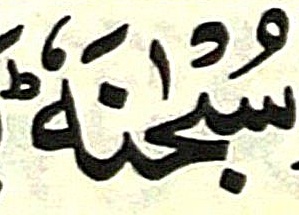 سُبْحٰنَهٗ ؕ